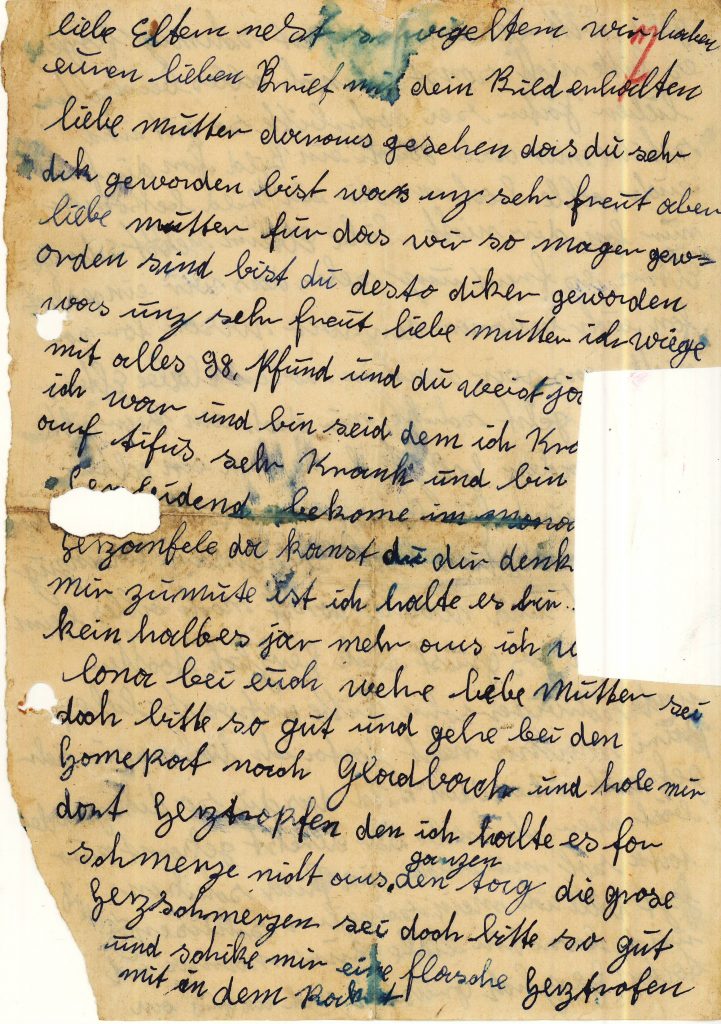 liebe Eltern nebst vigeltern wir haben
euren lieben Brief mit dein Bild enhalten
liebe mutter daraus gesehen das du sehr
dik geworden bist was unz sehr freut aber
liebe mutter für das wir so mager gew=
orden sind bist du desto diker geworden
was unz sehr freut liebe mutter ich wiege
mit alles 98. Pfund und du weist ja
ich war und bin seid dem ich Kra
auf tifus sehr Krank und bin
bekome im mona
herzanfele da kanst du dir denk
mir zumute ist ich halte es
kein halbes jar mehr aus ich
lona bei euch wehre liebe Mutter sei
doch bitte so gut und gehe bei den
Homepat nach Gladbach und hole mir
dort herztropfen den ich halte es for
schmerze nicht aus. den ganzen tag die grose
herzschmerzen sei doch bitte so gut
und schike mir eine flasche herztrofen
mit in dem Packet